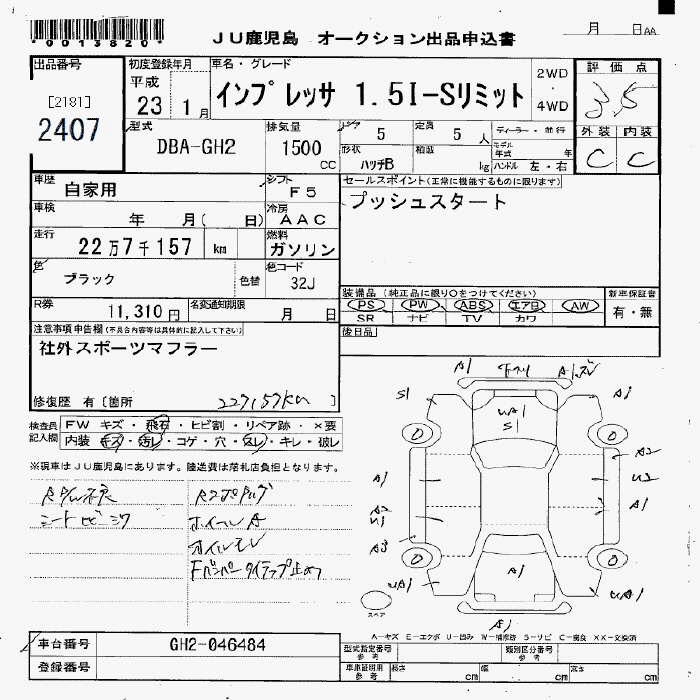 *0013820*
JU鹿児島 オークション出品申込書
月 日AA
出品番号
[2181]
2407
初度登録年月
平成
23 1月
車名・グレード
インプレッサ 1.5I-Sリミット
2WD
・
4WD
評価点
3.5
外装 内装
C C
型式
DBA-GH2
排気量
1500
CC
ドア
5
定員
5 人
ディーラー・並行
形状
ハッチB
積載
kg
モデル年式 年
ハンドル 左・右
車歴
自家用
シフト
F5
セールスポイント(正常に機能するものに限ります)
プッシュスタート
車検
年 月( 日)
冷房
AAC
走行
22万7千157 km
燃料
ガソリン
色
ブラック
色替
色コード
32J
R券
11,310円
名変通知期限
月 日
装備品(純正品に限り○をつけてください)
PS PW ABS エアB AW
SR ナビ TV カワ
新車保証書
有・無
後日品
注意事項申告欄(不具合内容等は具体的に記入して下さい)
社外スポーツマフラー
修復歴 有〔箇所
227157km 〕
検査員記入欄
FW キズ・飛石・ヒビ割・リペア跡・×要
内装 キズ・汚レ・コゲ・穴・スレ・キレ・破レ
※現車はJU鹿児島にあります。陸送費は落札店負担となります。
ホイールA
Fバンパータイラップ止め
A1
S1 A1
UA1
S1
A1 A2
U2
A2 A1
U1
A3
UA1 A1 UA1
スペア
A1
A-キズ E-エクボ U-凹み W-補修跡 S-サビ C-腐食 XX-交換済
車台番号
GH2-046484
登録番号
型式指定番号
参考
類別区分番号
参考
車庫証明用
参考
長さ cm 幅 cm 高さ cm